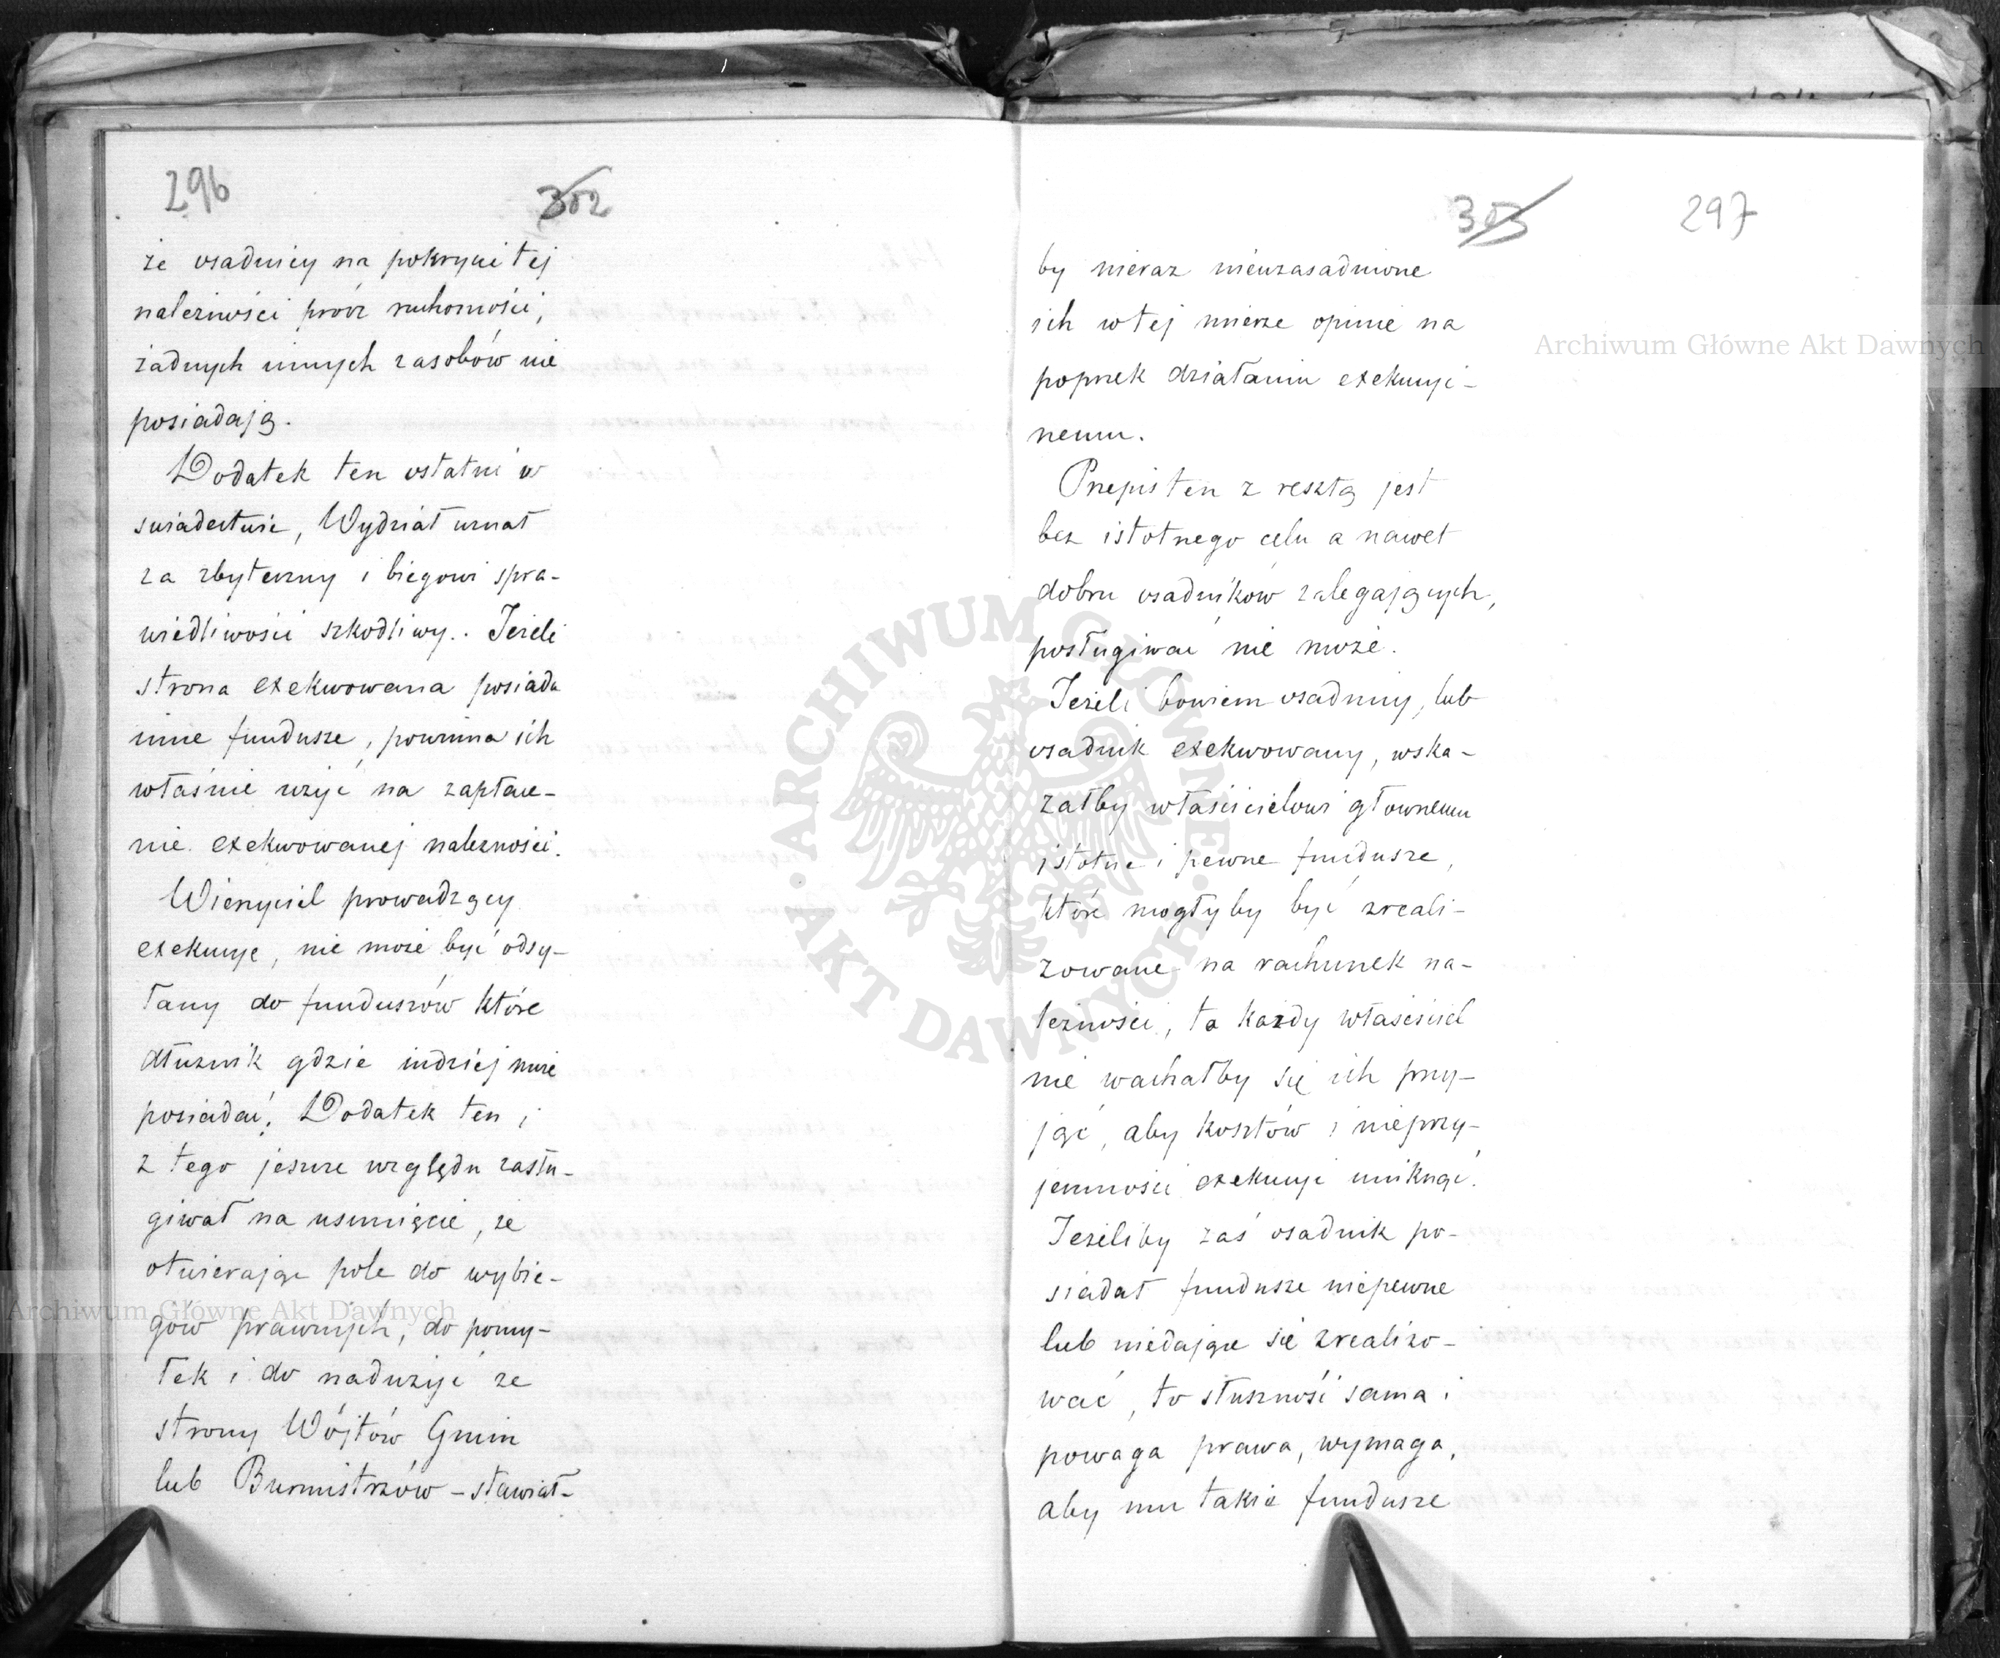 296
302
że osadnicy na pokrycie tej
należności prócz ruchomości,
żadnych innych zasobów nie
posiadają.
Dodatek ten ostatni w
świadectwie, Wydział uznał
za zbyteczny i biegowi spra-
wiedliwości szkodliwy. Jeżeli
strona exekwowana posiada
inne fundusze, powinna ich
właśnie użyć na zapłace-
nie exekwowanej należności.
Wierzyciel prowadzący
exekucyę, nie może być odsy-
łany do funduszów które
dłużnik gdzie indziej może
posiadać. Dodatek ten i
z tego jeszcze względu zasłu-
giwał na usunięcie, że
otwierając pole do wybie-
gów prawnych, do pomy-
łek i do nadużyć ze
strony Wójtów Gmin
lub Burmistrzów – stawiał-
303
297
by nieraz nieuzasadnione
ich w tej mierze opinie na
poprzek działaniu exekucyj-
nemu.
Przepis ten z resztą jest
bez istotnego celu a nawet
dobru osadników zalegających,
posługiwać nie może.
Jeżeli bowiem osadnicy, lub
osadnik exekwowany, wska-
załby właścicielowi głownemu
istotne i pewne fundusze,
które mogłyby być zreali-
zowane na rachunek na-
leżności, to każdy właściciel
nie wachałby się ich przy-
jąć, aby kosztów i nieprzy-
jemności exekucyi uniknąć.
Jeżeliby zaś osadnik po-
siadał fundusze niepewne
lub niedające się zrealizo-
wać, to słuszność sama i
powaga prawa, wymaga,
aby mu takie fundusze
Archiwum Główne Akt Dawnych
Archiwum Główne Akt Dawnych
ARCHIWUM GŁÓWNE
AKT DAWNYCH